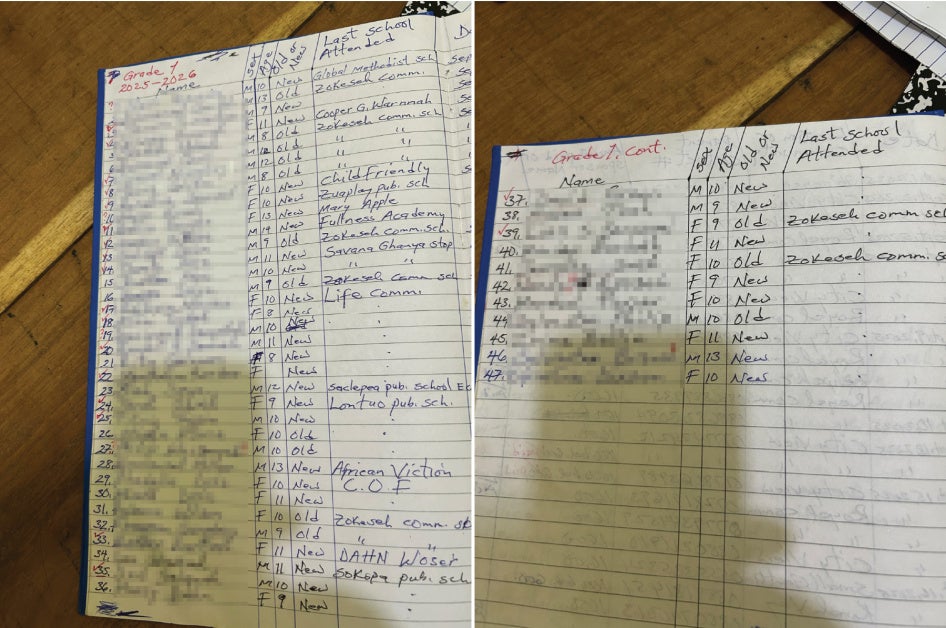 Grade 1
2025-2026
Name Sex Age Old or New Last School Attended
M 10 New Global Methodist sch
M 13 Old Zokeseh Comm.
M 9 New
F 11 New Cooper G.
M 8 Old Zokeseh comm. sch
M 12 Old " "
M 12 Old " "
M 8 Old " "
F 10 New Child friendly
F 10 New pub. sch
F 13 New Mary Apple
M 14 New Fullness Academy
M 9 Old Zokeseh comm. sch.
M 11 New Savana Ghanya stop
M 10 New " "
15 M 9 Old Zokeseh Comm sch
16 F 10 New Life Comm.
17 F 8 New
18 M 10
19. M 11 New
20 F 8 New
21 F New
22 M 12 New pub. school
23 F 9 New Lontuo pub. sch.
24. M 10 New
25. F 10 Old
26. M 10 Old
27. M 13 New African Viction
28. F 10 New C.O.F
29. F 11 New
30. F 10 Old Zokeseh comm.
31. M 9 Old " "
32. F 11 New DAHN Woser
33. M 11 New pub. sch
34. M 10 New
35. F 9 New
36.
Grade 1. Cont.
Name Sex Age Old or New Last School Attended
37. M 10 New
38. M 9 New
39. F 9 Old Zokeseh comm
40. F 11 New
41. F 10 Old Zokeseh Comm.
42. F 9 New
43. F 10 New
44. M 10 Old
45. F 11 New
46. M 13 New
47. F 10 New